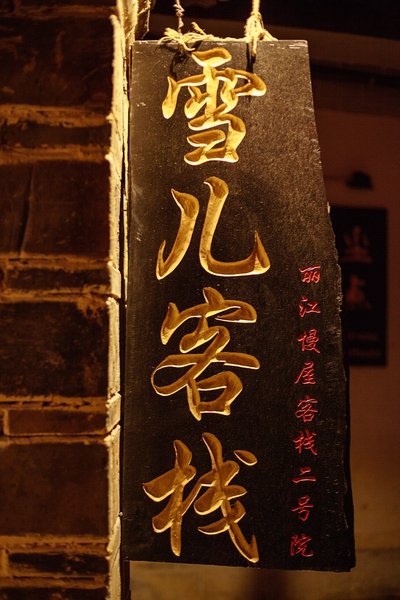 雪儿客栈
丽江慢屋客栈二号院